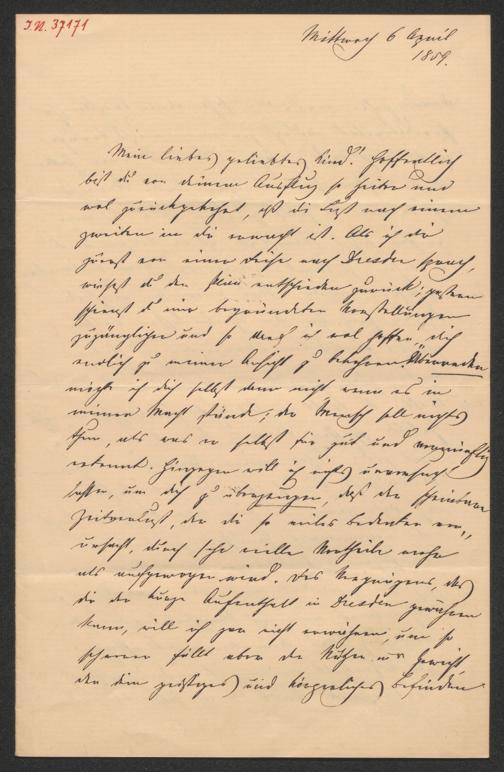 J.N. 37171
Mittwoch 6 April
1859.
Mein liebes geliebtes Kind! Hoffentlich
bist du von deinem Ausflug so heiter und
wol zurückgekehrt, daß die Lust nach einem
zweiten in dir erwacht ist. Als ich dir
zuerst von einer Reise nach Dresden sprach,
wiesest du den Plan entschieden zurück; gestern
schienst du mir begründeten Vorstellungen
zugänglicher und so darf ich wol hoffen dich
endlich zu meiner Ansicht zu bekehren. Überreden
möchte ich dich selbst dann nicht wenn es in
meiner Macht stünde; der Mensch soll nichts
thun, als was er selbst für gut und vernünftig
erkennt. Hingegen will ich nichts unversucht
lassen, um dich zu überzeugen, daß der scheinbare
Zeitverlust, der dir so vieles Bedenken ver-
ursacht, durch sehr reelle Vortheile mehr
als aufgewogen wird. Des Vergnügens, das
dir der kurze Aufenthalt in Dresden gewähren
kann, will ich gar nicht erwähnen, um so
schwerer fällt aber der Nutzen ins Gewicht
den dein geistiges und körperliches Befinden